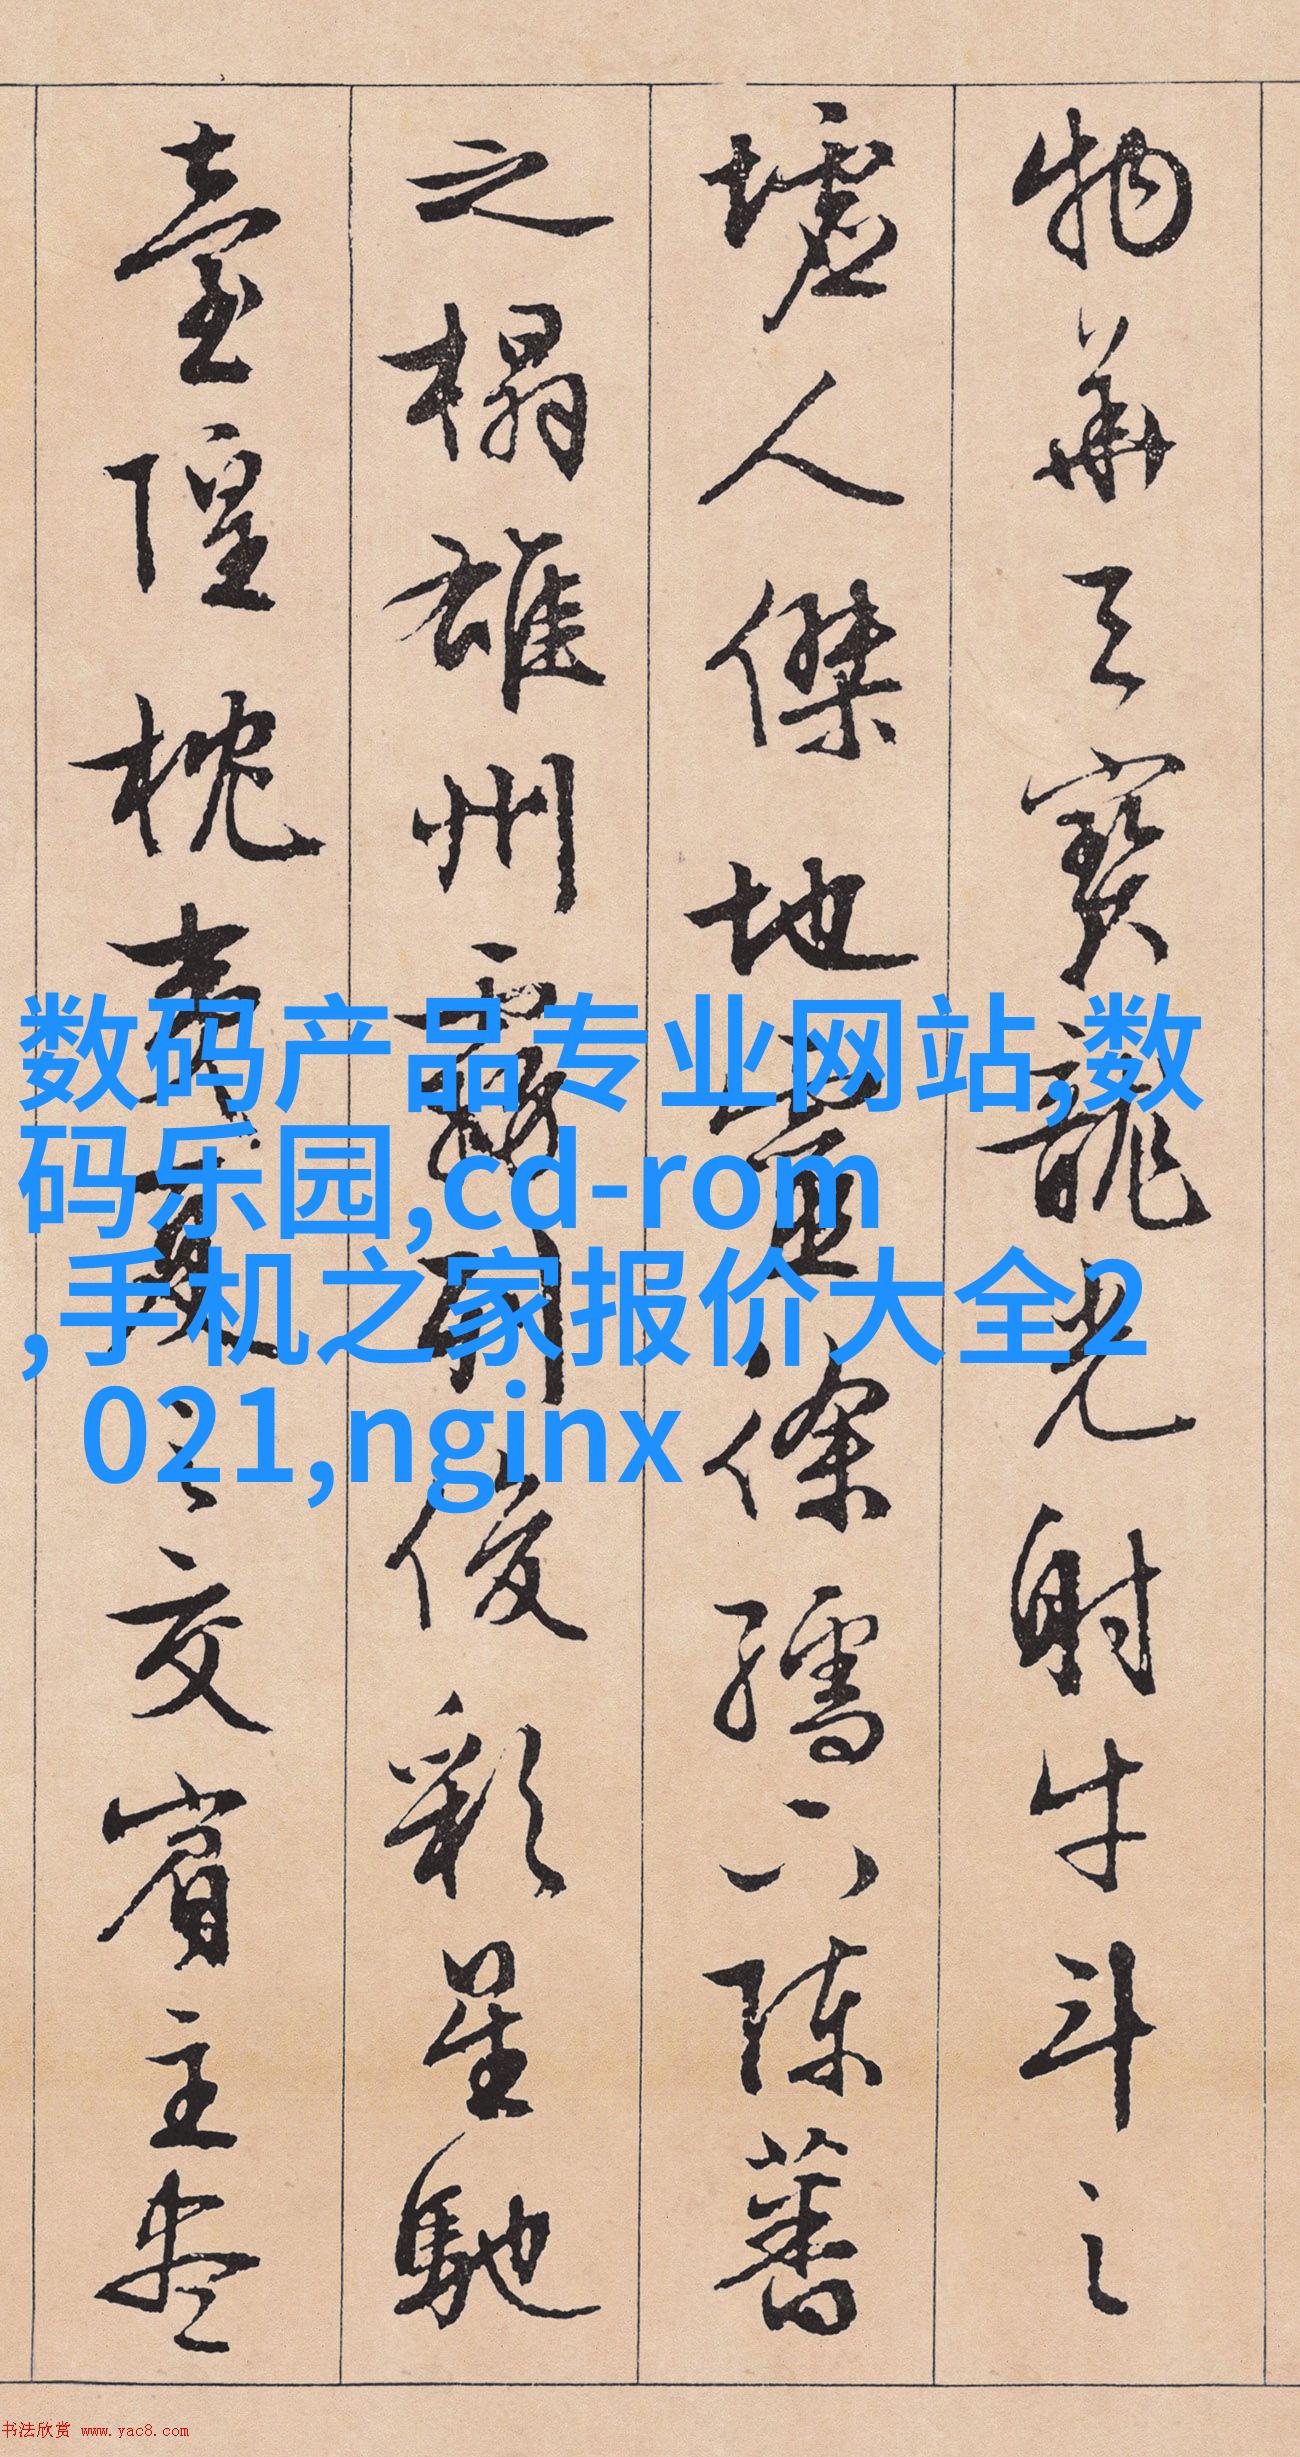 物華天寶龍光射牛斗之
墟人傑地靈徐孺下陳蕃
之榻雄州霧列俊彩星馳
臺隍枕夷夏之交賓主盡
数码产品专业网站,数
码乐园,cd-rom
,手机之家报价大全2
021,nginx
书法欣赏 www.yac8.com